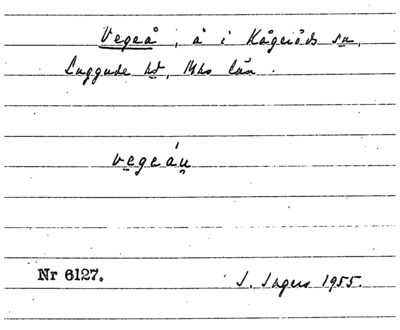 Vegeå, å i Kågeröds sn,
Luggude hd, Mhs län.
vegeán
Nr 6127. J. Ingers 1955.